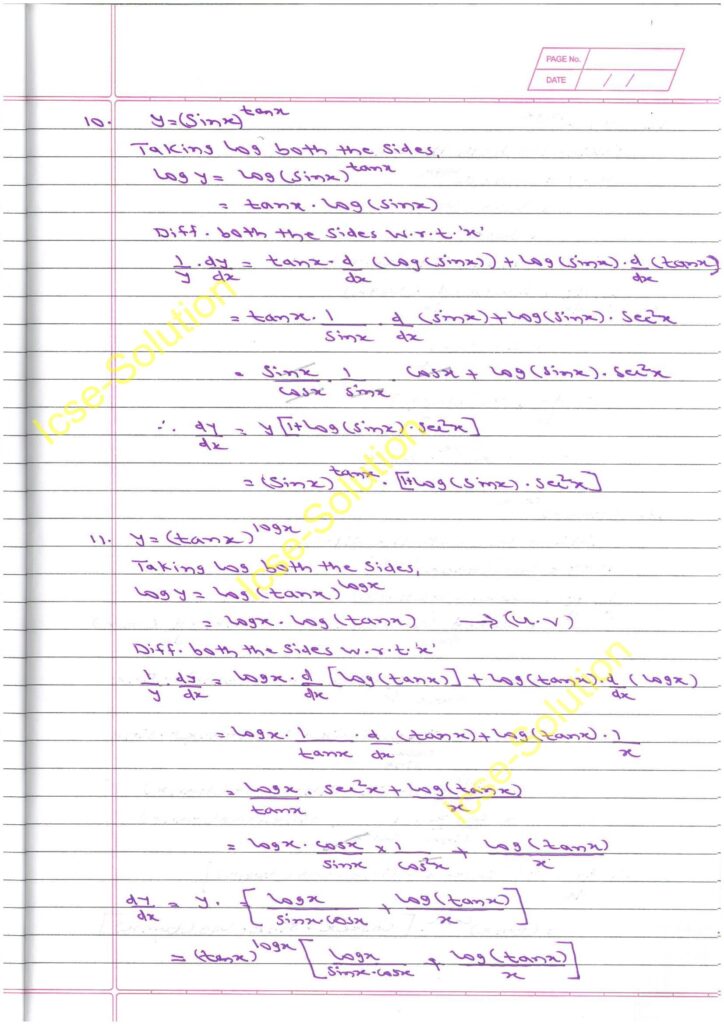 PAGE No.
DATE / /
10. y=(sinx)^tanx
Taking log both the sides,
log y = log(sinx)^tanx
= tanx · log(sinx)
Diff. both the sides w.r.t. 'x'
1/y · dy/dx = tanx · d/dx (log(sinx)) + log(sinx) · d/dx (tanx)
= tanx · 1/sinx · d/dx (sinx) + log(sinx) · sec²x
= sinx/cosx · 1/sinx · cosx + log(sinx) · sec²x
∴ dy/dx = y [1+log(sinx) · sec²x]
= (sinx)^tanx · [1+log(sinx) · sec²x]
11. y=(tanx)^logx
Taking log both the sides,
log y = log(tanx)^logx
= logx · log(tanx) → (u.v)
Diff. both the sides w.r.t. 'x'
1/y · dy/dx = logx · d/dx [log(tanx)] + log(tanx) · d/dx (logx)
= logx · 1/tanx · d/dx (tanx) + log(tanx) · 1/x
= logx/tanx · sec²x + log(tanx)/x
= logx · cosx/sinx × 1/cos²x + log(tanx)/x
dy/dx = y · [logx/sinx cosx + log(tanx)/x]
= (tanx)^logx [logx/sinx·cosx + log(tanx)/x]
Icse-Solution
Icse-Solution
Icse-Solution